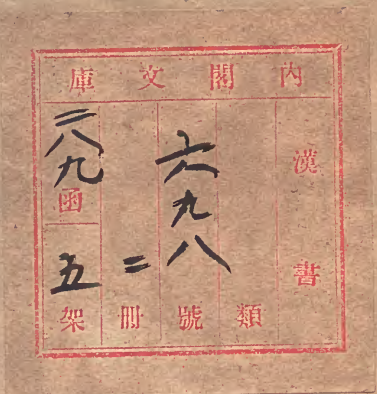 內閣文庫
漢書
類
六九八號
二冊
二八九函
五架